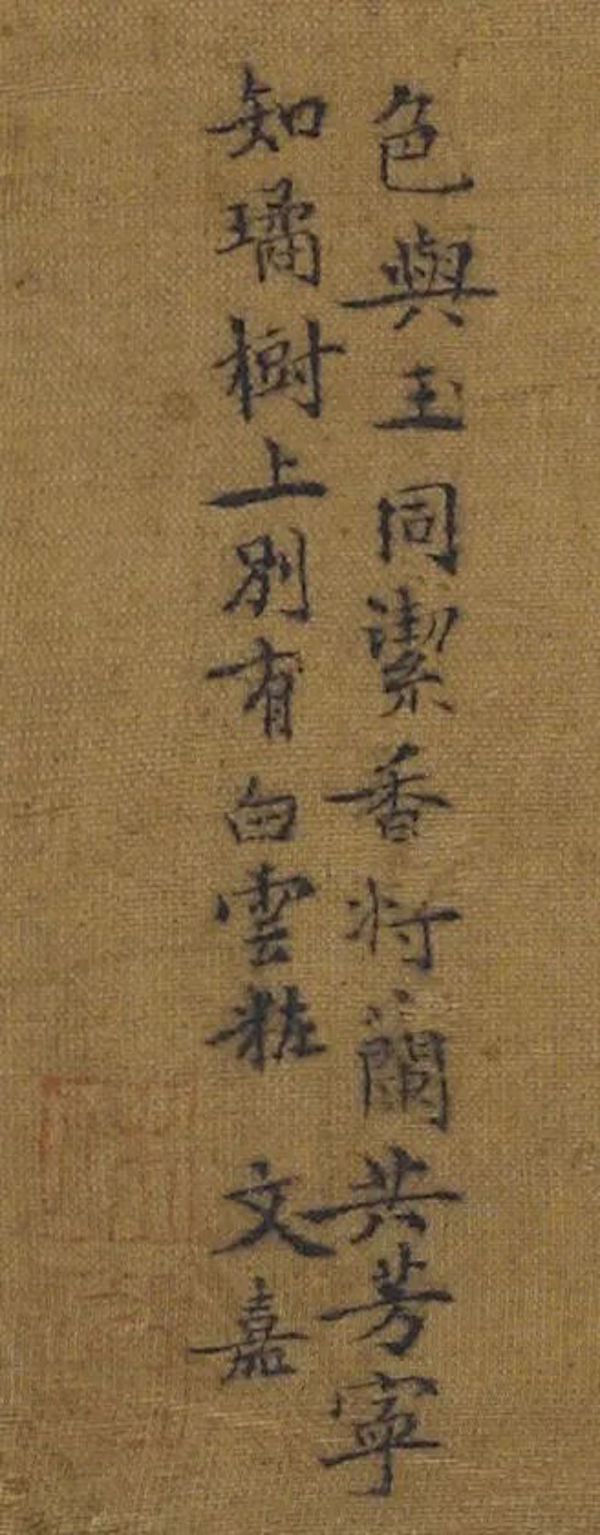 色與玉同潔香将蘭共芳寧
知璚樹上別有白雲粧 文嘉